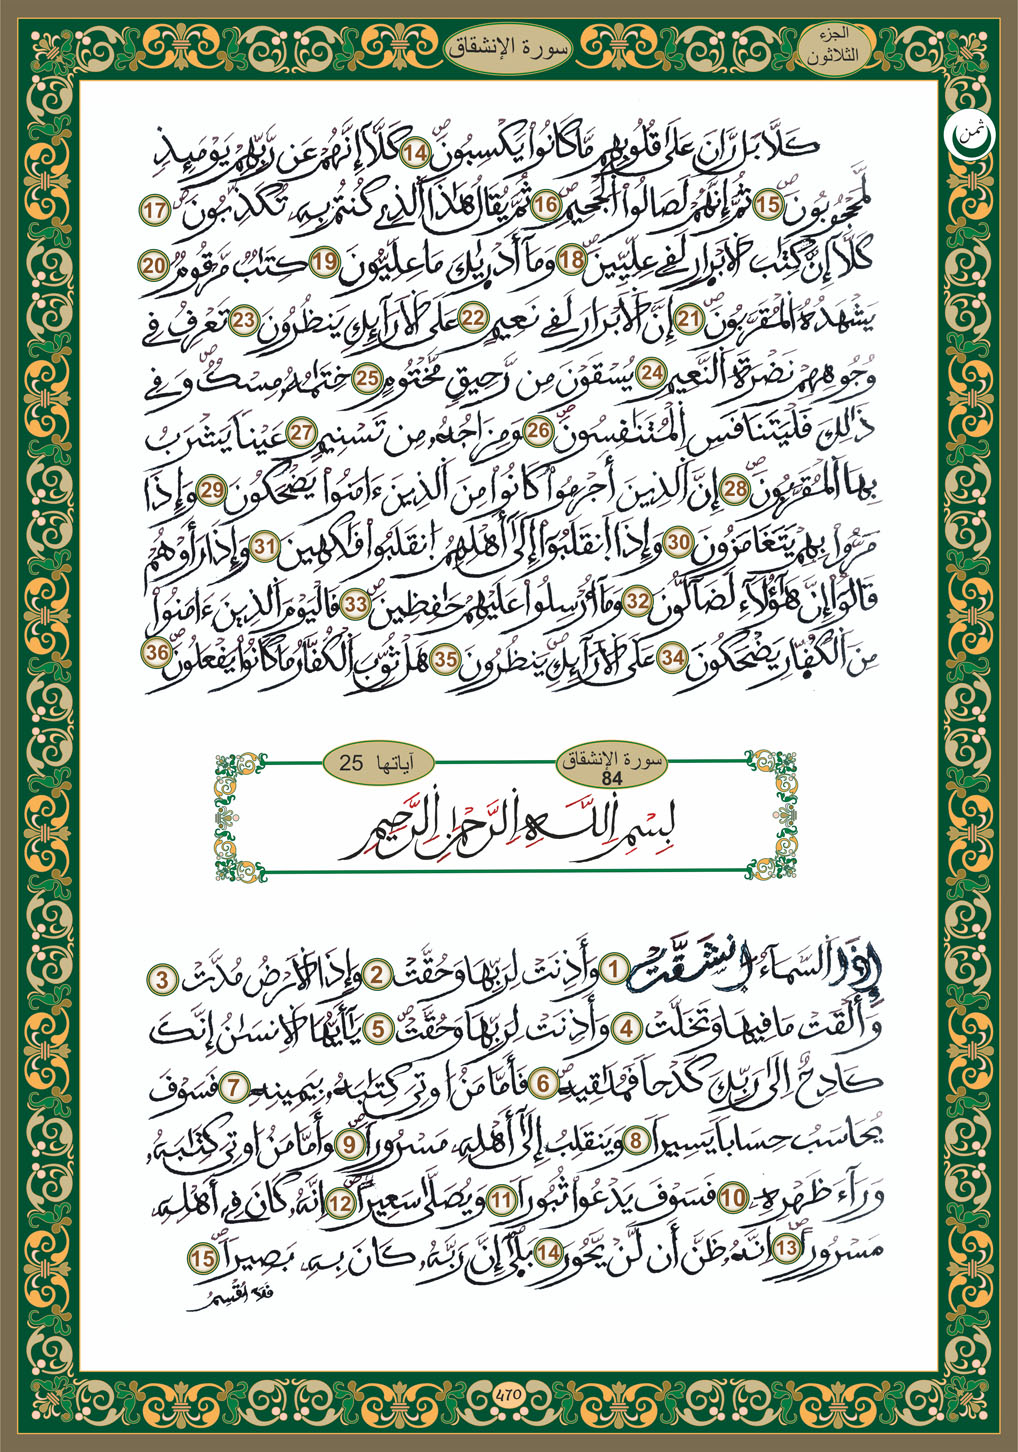 سورة الإنشقاق
الجزء
الثلاثون
ثمن
كَلَّا بَل رَّانَ عَلَىٰ قُلُوبِهِم مَّا كَانُواْ يَكْسِبُونَۖ 14 كَلَّآ إِنَّهُمْ عَن رَّبِّهِمْ يَوْمَئِذٖ
لَّمَحْجُوبُونَۖ 15 ثُمَّ إِنَّهُمْ لَصَالُواْ اُلْجَحِيمِۖ 16 ثُمَّ يُقَالُ هَٰذَا اَلذِے كُنتُم بِهِۦ تُكَذِّبُونَۖ 17
كَلَّآ إِنَّ كِتَٰبَ اَلَابْرٰارِ لَفِے عِلِّيِّينَۖ 18 وَمَآ أَدْر۪يٰكَ مَا عِلِّيُّونَ 19 كِتَٰبٞ مَّرْقُومٞ 20
يَشْهَدُهُ اُلْمُقَرَّبُونَۖ 21 إِنَّ اَلَابْرَارَ لَفِے نَعِيمٍ 22 عَلَى اَلَارَآئِكِ يَنظُرُونَ 23 تَعْرِفُ فِے
وُجُوهِهِمْ نَضْرَةَ اَلنَّعِيمِ 24 يُسْقَوْنَ مِن رَّحِيقٖ مَّخْتُومٍ 25 خِتَٰمُهُۥ مِسْكٞۖ وَفِے
ذَٰلِكَ فَلْيَتَنَافَسِ اِلْمُتَنَٰفِسُونَۖ 26 وَمِزَاجُهُۥ مِن تَسْنِيمٍ 27 عَيْناٗ يَشْرَبُ
بِهَا اَلْمُقَرَّبُونَۖ 28 إِنَّ اَلذِينَ أَجْرَمُواْ كَانُواْ مِنَ اَلذِينَ ءَامَنُواْ يَضْحَكُونَ 29 وَإِذَا
مَرُّواْ بِهِمْ يَتَغَامَزُونَ 30 وَإِذَا اَنقَلَبُوٓاْ إِلَىٰٓ أَهْلِهِمُ اُنقَلَبُواْ فَٰكِهِينَ 31 وَإِذَا رَأَوْهُمْ
قَالُوٓاْ إِنَّ هَٰٓؤُلَآءِ لَضَآلُّونَ 32 وَمَآ أُرْسِلُواْ عَلَيْهِمْ حَٰفِظِينَۖ 33 فَالْيَوْمَ اَلذِينَ ءَامَنُواْ
مِنَ اَلْكُفّ۪ارِ يَضْحَكُونَ 34 عَلَى اَلَارَآئِكِ يَنظُرُونَ 35 هَلْ ثُوِّبَ اَلْكُفَّارُ مَا كَانُواْ يَفْعَلُونَۖ 36
سورة الإنشقاق
84
آياتها 25
بِسْمِ اِللَّهِ اِلرَّحْمَٰنِ اِلرَّحِيمِ
إِذَا اَلسَّمَآءُ اُنشَقَّتْ 1 وَأَذِنَتْ لِرَبِّهَا وَحُقَّتْ 2 وَإِذَا اَلَارْضُ مُدَّتْ 3
وَأَلْقَتْ مَا فِيهَا وَتَخَلَّتْ 4 وَأَذِنَتْ لِرَبِّهَا وَحُقَّتْۖ 5 يَٰٓأَيُّهَا اَلِانسَٰنُ إِنَّكَ
كَادِحٌ اِلَىٰ رَبِّكَ كَدْحاٗ فَمُلَٰقِيهِۖ 6 فَأَمَّا مَنُ ا۟وتِيَ كِتَٰبَهُۥ بِيَمِينِهِۦ 7 فَسَوْفَ
يُحَاسَبُ حِسَاباٗ يَسِيراٗ 8 وَيَنقَلِبُ إِلَىٰٓ أَهْلِهِۦ مَسْرُوراٗۖ 9 وَأَمَّا مَنُ ا۟وتِيَ كِتَٰبَهُۥ
وَرَآءَ ظَهْرِهِۦ 10 فَسَوْفَ يَدْعُواْ ثُبُوراٗ 11 وَيُصَلَّىٰ سَعِيراًۖ 12 اِنَّهُۥ كَانَ فِےٓ أَهْلِهِۦ
مَسْرُوراًۖ 13 اِنَّهُۥ ظَنَّ أَن لَّنْ يَّحُورَۖ 14 بَلَىٰٓۖ إِنَّ رَبَّهُۥ كَانَ بِهِۦ بَصِيراٗۖ 15
فَلَآ أُقْسِمُ
470